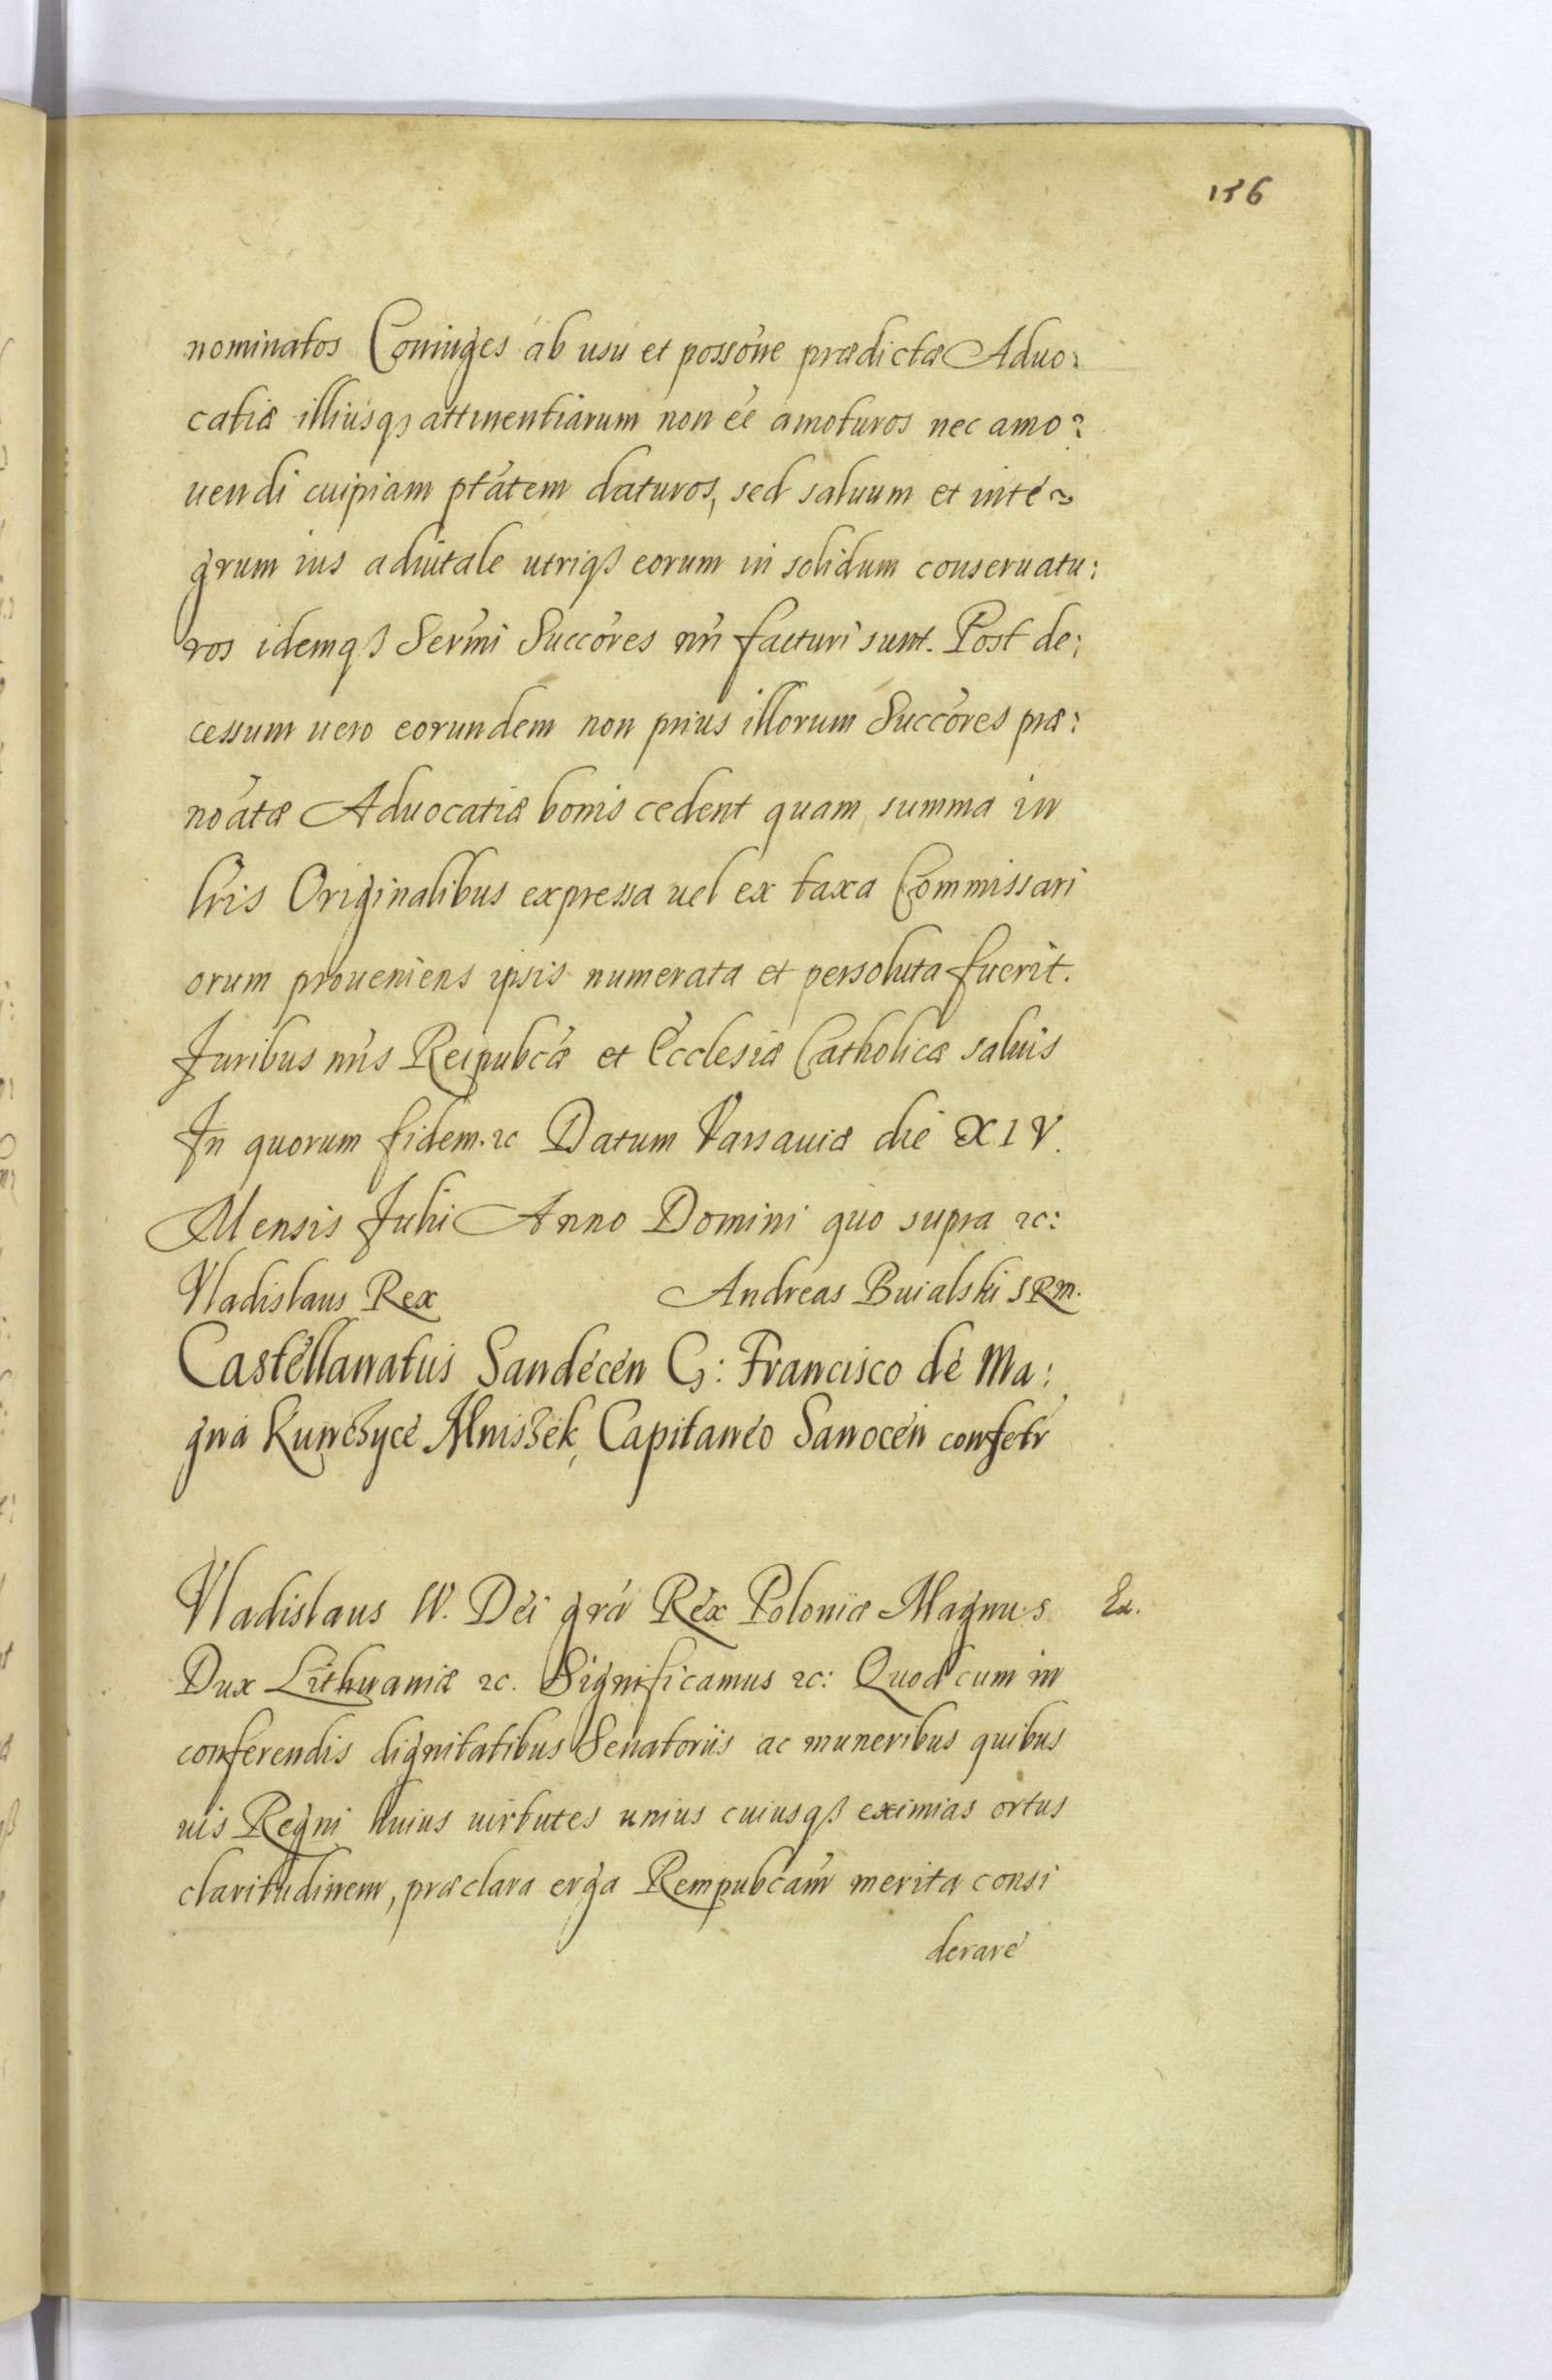 156
nominatos Coniuges ab usu et possõne prædictæ Aduo:
catiæ illiusq3 attinentiarum non ẽe amoturos nec amo:
uendi cuipiam ptãtem daturos, sed saluum et inte~
grum ius aduitale utriqß eorum in solidum conseruatu:
ros idemqß Serm̃i Succõres nr̃i facturi sunt. Post de:
cessum uero eorundem non prius illorum Succõres præ:
noãtæ Aduocatiæ bonis cedent quam summa in
lr̃is Originalibus expressa uel ex taxa Commissari
orum proueniens ipsis numerata et persoluta fuerit.
Juribus nr̃is Reipubcæ et Ecclesiæ Catholicæ saluis
In quorum fidem. 2c Datum Varsauiæ die XIV.
Mensis Julii Anno Domini quo supra 2c:
Vladislaus Rex Andreas Buialski SRM.
Castellanatus Sandecen G: Francisco de Ma:
gna Kunczyce Mniszek, Capitaneo Sanocen confetr
Vladislaus IV. Dei grã Rex Poloniæ Magnus Ex.
Dux Lithuaniæ 2c. Significamus 2c: Quod cum in
conferendis dignitatibus Senatoriis ac muneribus quibus
uis Regni huius uirtutes unius cuiusqß eximias ortus
claritudinem, præclara erga Rempubcam merita consi
derare